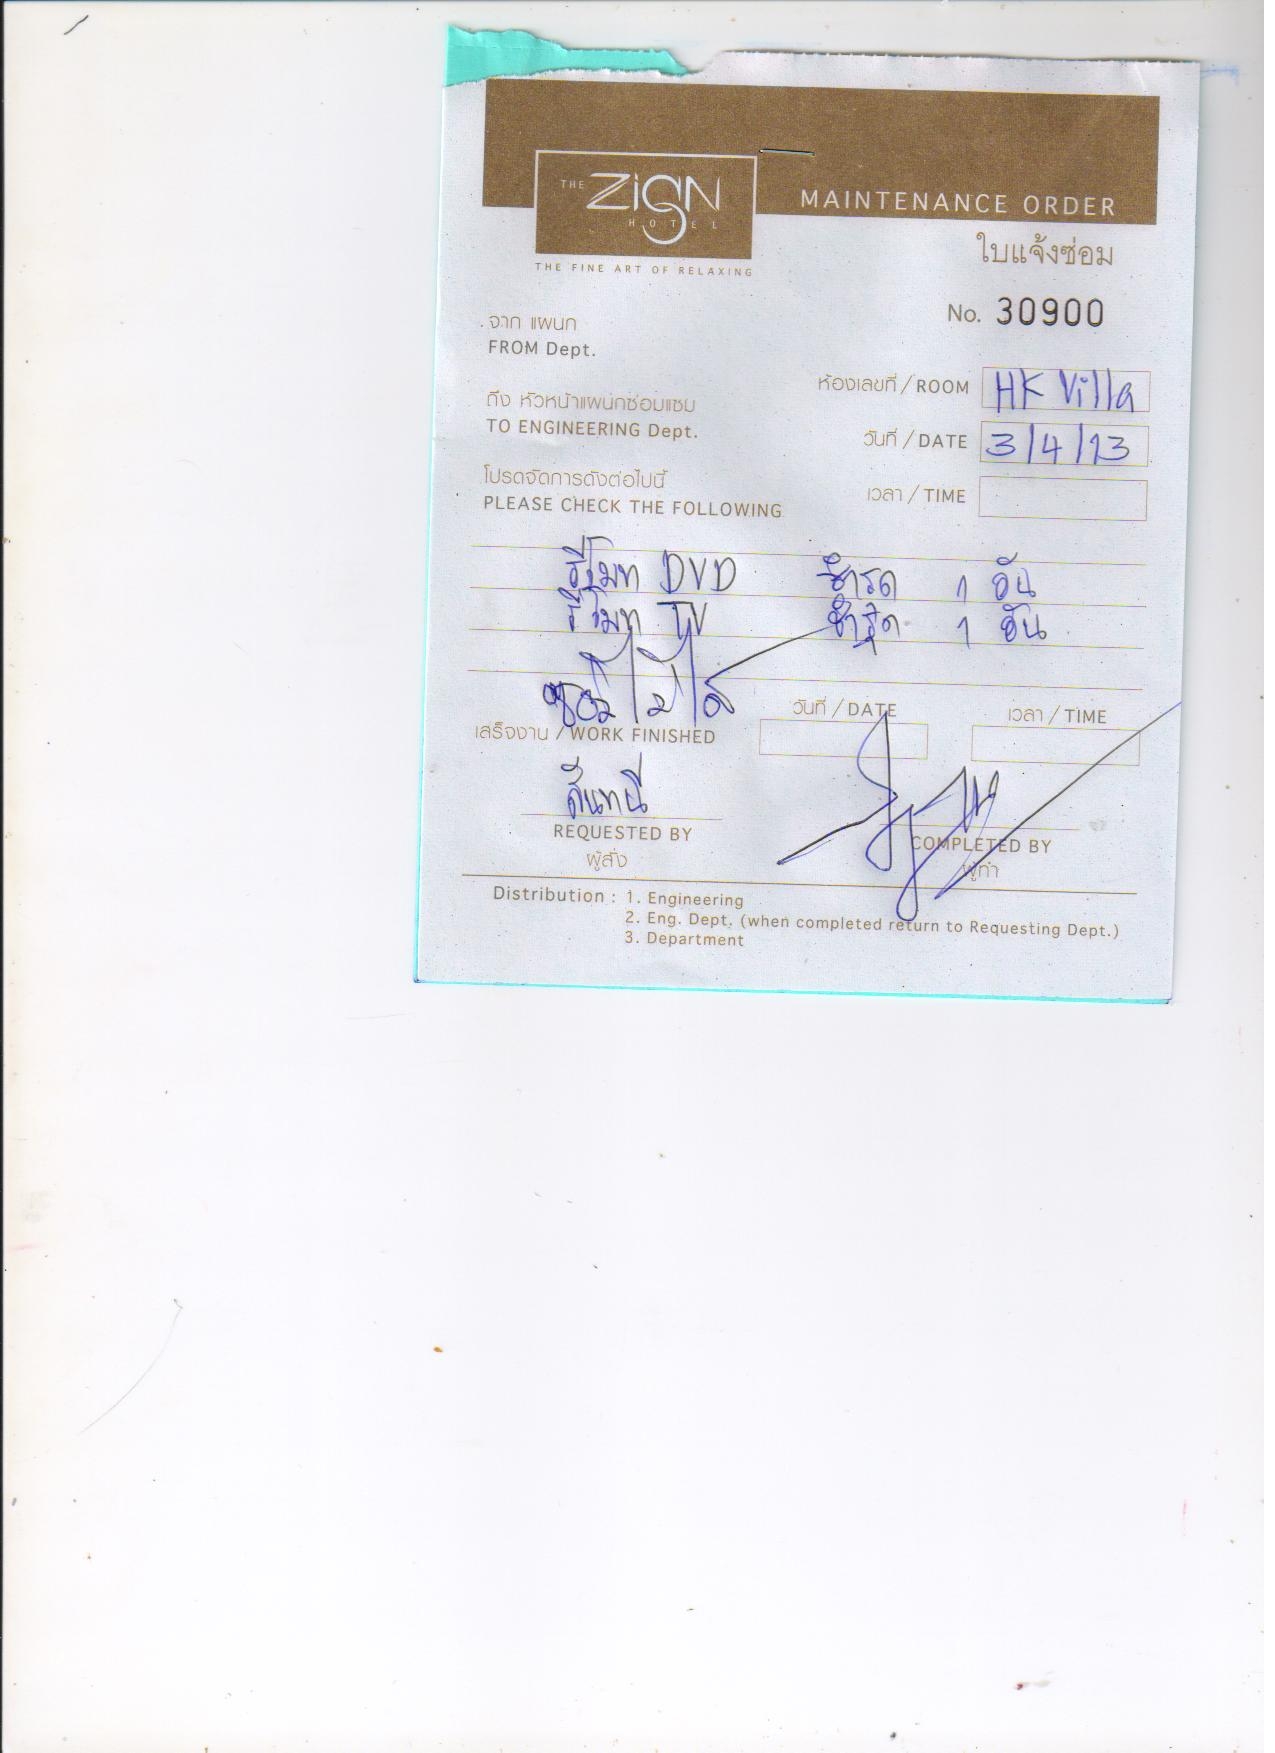 THE ZIGN HOTEL
THE FINE ART OF RELAXING
MAINTENANCE ORDER
ใบแจ้งซ่อม
No. 30900
จาก แผนก
FROM Dept.
ห้องเลขที่ / ROOM HK Villa
ถึง หัวหน้าแผนกซ่อมแซม
TO ENGINEERING Dept.
วันที่ / DATE 3/4/13
โปรดจัดการดังต่อไปนี้
PLEASE CHECK THE FOLLOWING
เวลา / TIME
รีโมท DVD ชำรุด 1 อัน
รีโมท TV ชำรุด 1 อัน
ซ่อมไม่ได้
เสร็จงาน / WORK FINISHED
วันที่ / DATE
เวลา / TIME
REQUESTED BY
ผู้สั่ง
COMPLETED BY
ผู้ทำ
Distribution : 1. Engineering
2. Eng. Dept. (when completed return to Requesting Dept.)
3. Department